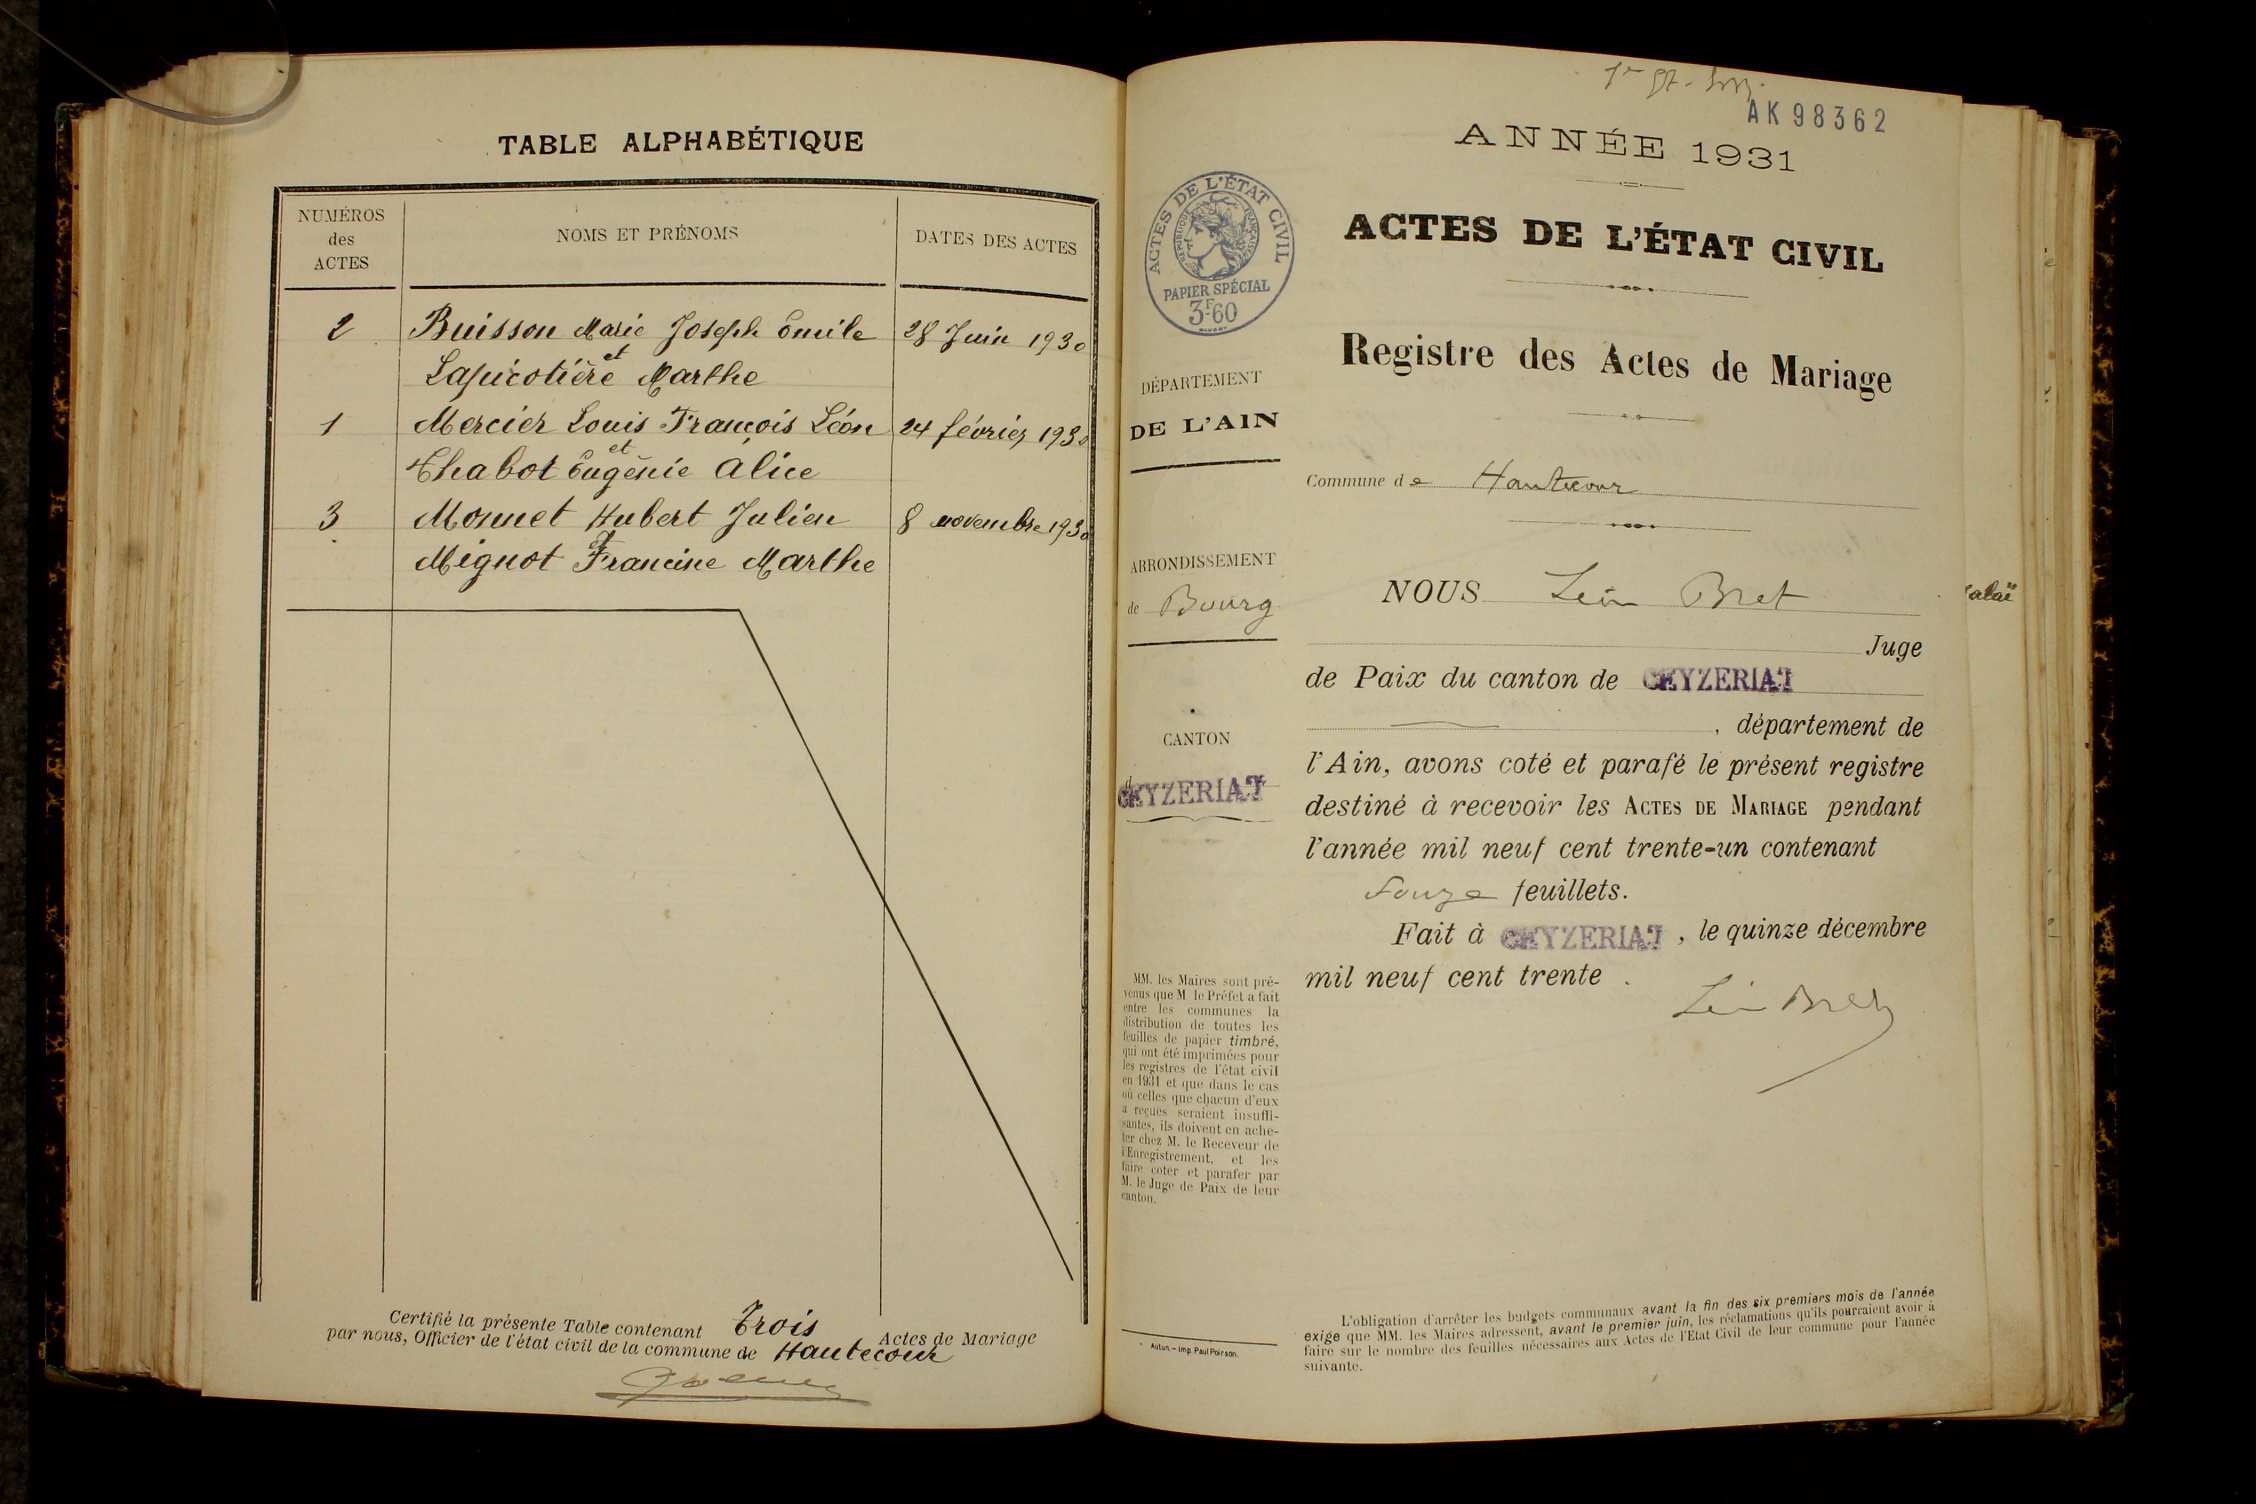 TABLE ALPHABÉTIQUE
NUMÉROS
des
ACTES
NOMS ET PRÉNOMS
DATES DES ACTES
2 Buisson Marie Joseph Emile 28 Juin 1930
et
Lapicotière Marthe
1 Mercier Louis François Léon 24 février 1930
et
Chabot Eugènie Alice
3 Monnet Hubert Julien 8 novembre 1930
Mignot Francine Marthe
Certifié la présente Table contenant Trois Actes de Mariage
par nous, Officier de l'état civil de la commune de Hautecour
AK 98362
ANNÉE 1931
ACTES DE L'ÉTAT CIVIL
RÉPUBLIQUE FRANÇAISE
PAPIER SPÉCIAL
3F60
ACTES DE L'ÉTAT CIVIL
Registre des Actes de Mariage
DÉPARTEMENT
DE L'AIN
Commune de Hautecour
ARRONDISSEMENT
de Bourg
NOUS Léon Bret
Juge
de Paix du canton de CEYZERIAT
, département de
CANTON
d
CEYZERIAT
l'Ain, avons coté et parafé le présent registre
destiné à recevoir les ACTES DE MARIAGE pendant
l'année mil neuf cent trente-un contenant
douze feuillets.
Fait à CEYZERIAT, le quinze décembre
mil neuf cent trente.
Léon Bret
MM. les Maires sont pré-
venus que M le Préfet a fait
entre les communes la
distribution de toutes les
feuilles de papier timbré,
qui ont été imprimées pour
les registres de l'état civil
en 1931 et que dans le cas
où celles que chacun d'eux
a reçues seraient insuffi-
santes, ils doivent en ache-
ter chez M. le Receveur de
l'Enregistrement, et les
faire coter et parafer par
M. le Juge de Paix de leur
canton.
Autun. — Imp. Paul Poirson.
L'obligation d'arrêter les budgets communaux avant la fin des six premiers mois de l'année
exige que MM. les Maires adressent, avant le premier juin, les réclamations qu'ils pourraient avoir à
faire sur le nombre des feuilles nécessaires aux Actes de l'Etat Civil de leur commune pour l'année
suivante.